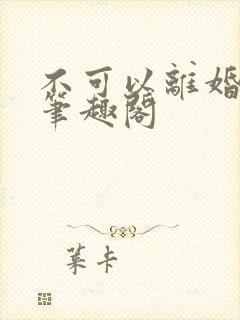 不可以離婚
筆趣閣
葉卡